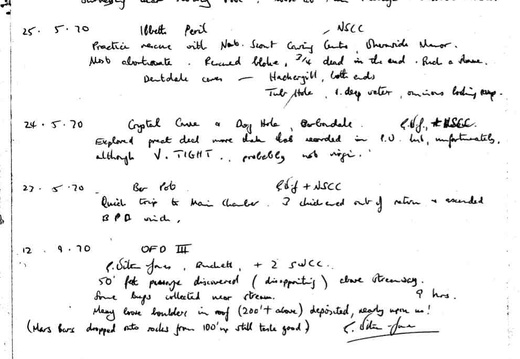 25 . 5 . 70 Ibbeth Peril NSCC
Practice rescue with Nat. Scout Caving Centre, Manor.
Most obstinate. Rescued bloke, 3/4 dead in the end.
Dentdale caves — Hackergill, both ends
Tub Hole, 1. deep water, ominous looking sump.
24 . 5 . 70 Crystal Cave & Dog Hole, Barbondale NSCC.
Explored great deal more than that recorded in P.U. but, unfortunately,
although V. TIGHT .. probably not virgin.
27 . 5 . 70 Bar Pot + NSCC
Quick trip to Main Chamber. 3 chickened out of return & ascended
B P B winch.
12 . 9 . 70 OFD III
+ 2 SWCC.
50' flat passage discovered (disappointing) above streamway.
Some bugs collected near stream. 9 hrs.
Many loose boulders in roof (200'+ above) deposited, nearly upon us!
(Mars Bars dropped onto rocks from 100' up still taste good)